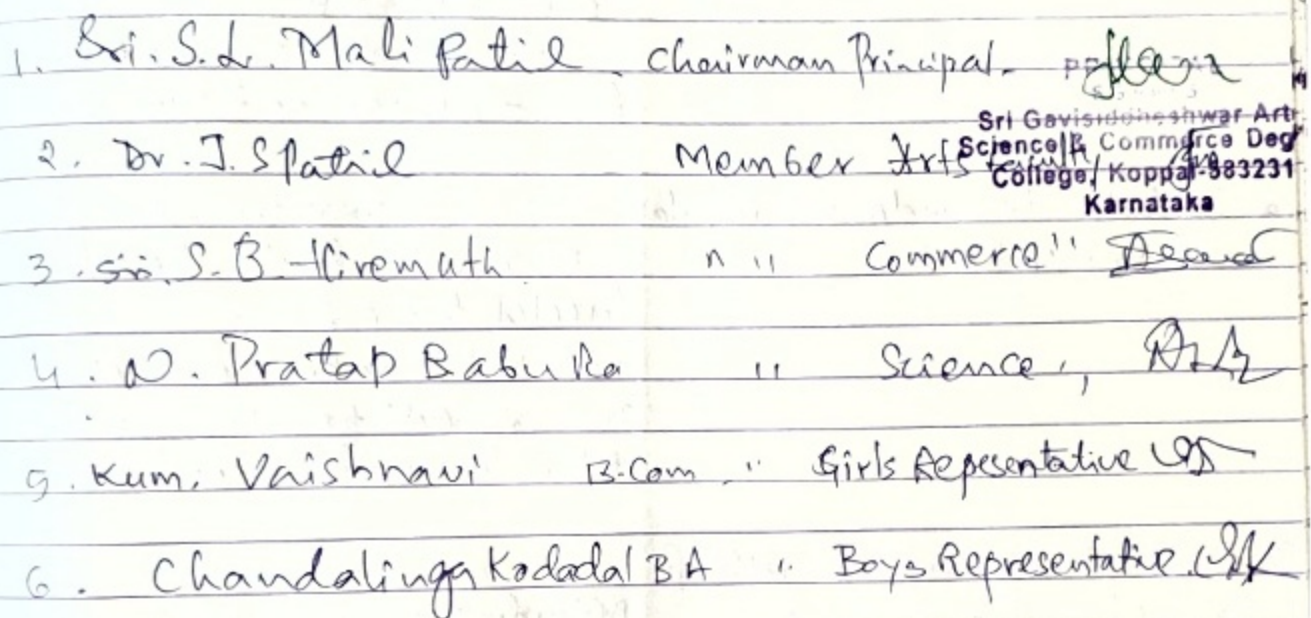 1. Sri. S.L. Mali Patil. Chairman Principal.
Sri Gavisiddheshwar Art
Science & Commerce Deg
College, Koppal-583231
Karnataka
2. Dr. J. S Patil Member Arts
3. Sri. S. B. Hiremath " " Commerce "
4. N. Pratap Babu Ra " Science "
5. Kum. Vaishnavi B.Com " Girls Repesentative
6. Chandalinga Kodadal BA " Boys Representative